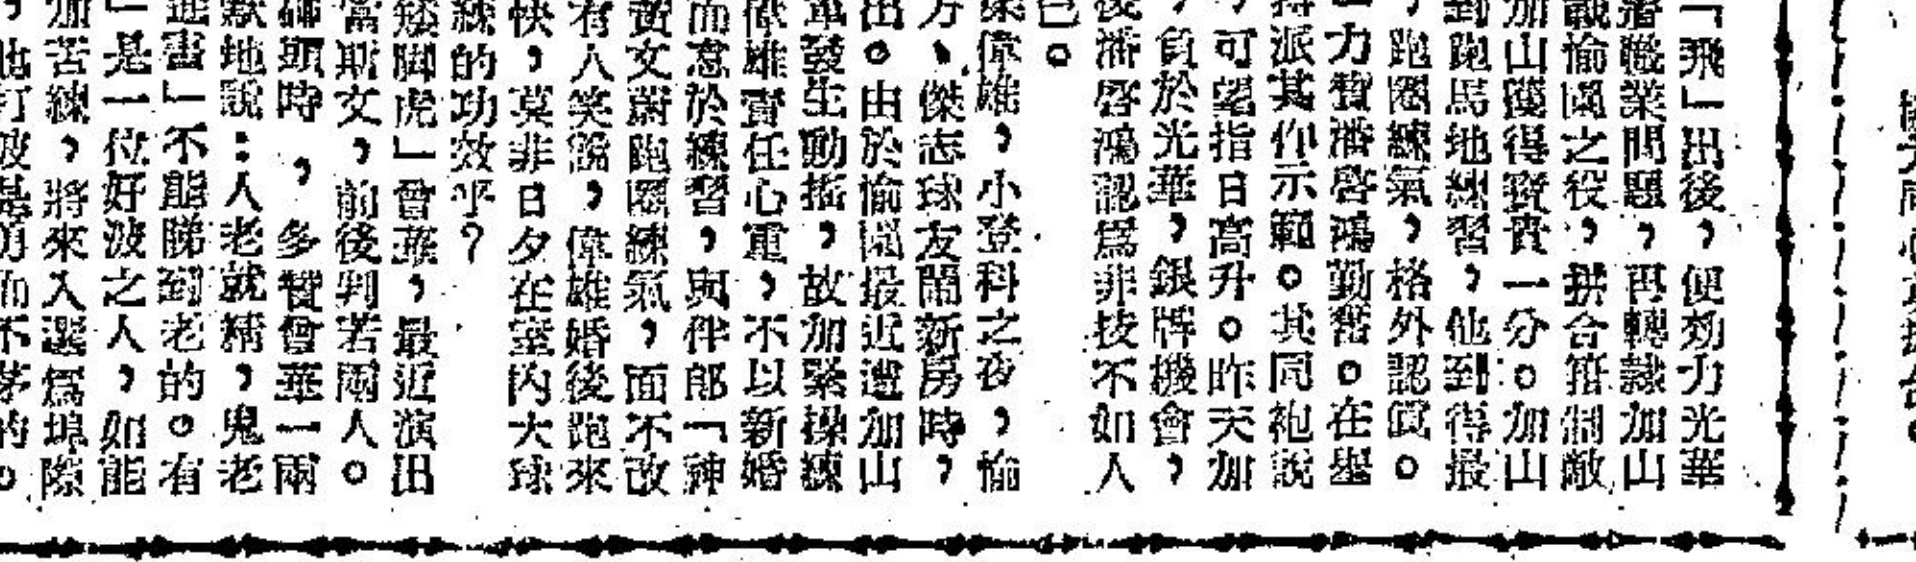 「飛」出後，便効力光華
潛職業問題，再轉隸加山
戰愉園之役，拱合箝制敵
加山獲得寶貴一分。加山
到跑馬地練習，他到得最
，跑圈練氣，格外認眞。
力贊潘啓鴻勤奮。在塲
搏派其作示範。其同袍說
，可望指日高升。昨天加
，負於光華，銀牌機會，
後潘啓鴻認爲非技不如人
已。
梁偉雄，小登科之夜，愉
方，傑志球友鬧新房時，
出。由於愉園最近遭加山
軍發生動搖，故加緊操練
偉雄責任心重，不以新婚
而怠於練習，與伴郎「神
黃文蔚跑圈練氣，面不改
有人笑說，偉雄婚後跑來
快，莫非日夕在室內大球
練的功效乎？
矮脚虎」曾華，最近演出
富斯文，前後判若兩人。
頭時，多贊曾華一兩
默地說：人老就精，鬼老
書」不能睇到老的。有
」是一位好波之人，如能
加苦練，將來入選爲埠際
，他打波是勇而不茅的。